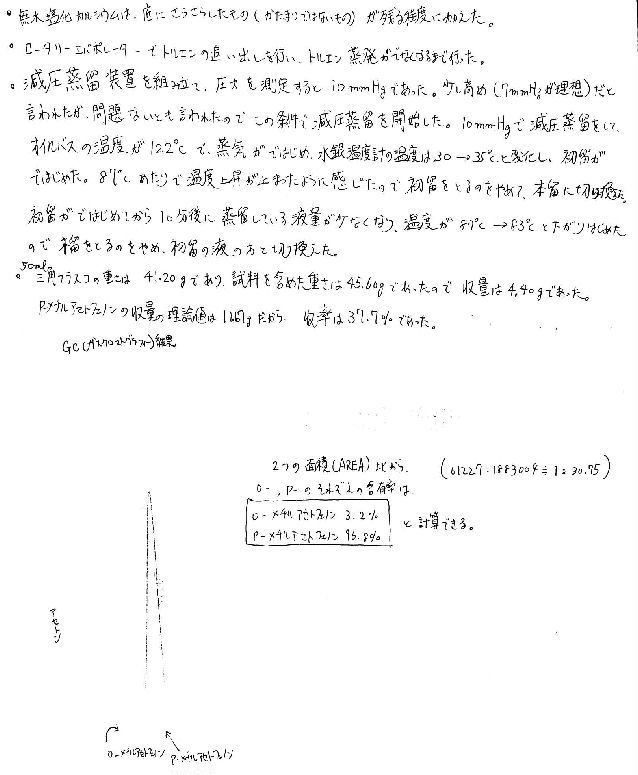 • 無水塩化カルシウムは、底にさらさらしたもの(かたまりではないもの)が残る程度に加えた。
• ロータリーエバポレーターでトルエンの追い出しを行い、トルエン蒸発がでなくなるまで行った。
• 減圧蒸留装置を組み立て、圧力を測定すると10mmHgであった。少し高め(7mmHgが理想)だと
言われたが、問題ないとも言われたのでこの条件で減圧蒸留を開始した。10mmHgで減圧蒸留をして、
オイルバスの温度が122℃で、蒸気がではじめ、水銀温度計の温度は30→35℃と変化し、初留が
ではじめた。89℃あたりで温度上昇が止まったように感じたので初留をとるのをやめて、本留に切り換えた。
初留がではじめてから10分後に蒸留している液量が少なくなり、温度が89℃→83℃と下がりはじめた
ので本留をとるのをやめ、初留の液の方と切り換えた。
50mL
• 三角フラスコの重さは41.20gであり、試料を含めた重さは45.60gであったので収量は4.40gであった。
P-メチルアセトフェノンの収量の理論値は11.67gだから、収率は37.7%であった。
GC(ガスクロマトグラフィー)結果
2つの面積(AREA)比から、 (61229:1883004≒1:30.75)
o-、p-のそれぞれの含有率は
o-メチルアセトフェノン 3.2%
P-メチルアセトフェノン 96.8%
と計算できる。
アセトン
o-メチルアセトフェノン
P-メチルアセトフェノン